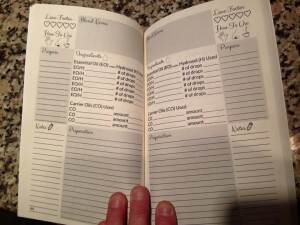 Love Factor
How To Use
Purpose
Notes
Blend Name
Ingredients
Essential Oil (EO) or Hydrosol (H) Used
EO/H # of drops
EO/H # of drops
EO/H # of drops
EO/H # of drops
EO/H # of drops
EO/H # of drops
Carrier Oils (CO) Used
CO amount
CO amount
CO amount
Preparation
Blend Name
Ingredients
Essential Oil (EO) or Hydrosol (H) Used
EO/H # of drops
EO/H # of drops
EO/H # of drops
EO/H # of drops
EO/H # of drops
EO/H # of drops
Carrier Oils (CO) Used
CO amount
CO amount
CO amount
Preparation
Love Factor
How To Use
Purpose
Notes